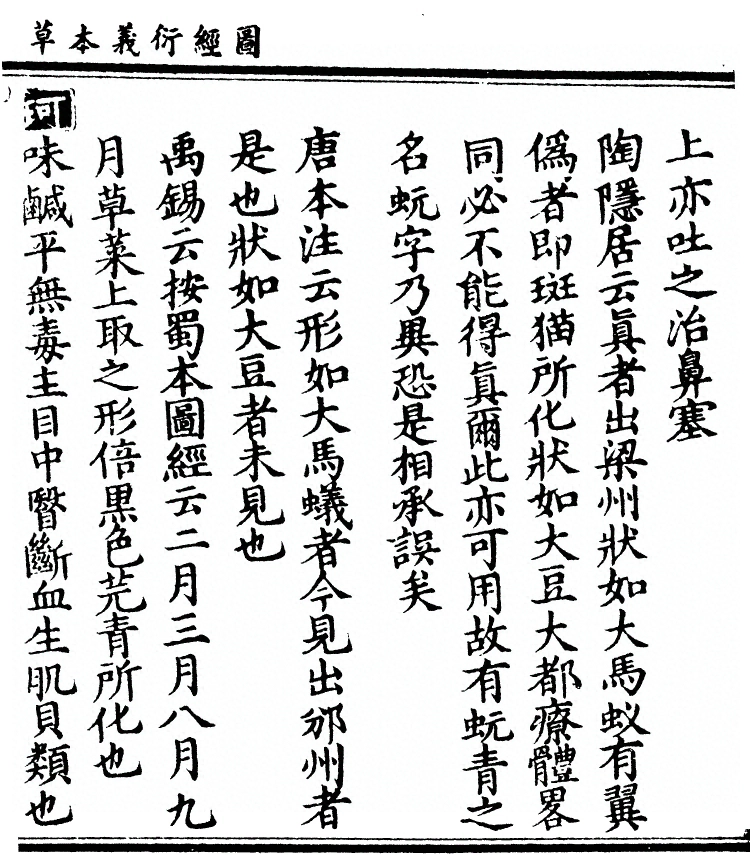 圖經衍義本草
上亦吐之治鼻塞
陶隱居云眞者出梁州狀如大馬蚁有翼
僞者即斑猫所化狀如大豆大都療體畧
同必不能得眞爾此亦可用故有蚖青之
名蚖字乃異恐是相承誤矣
唐本注云形如大馬蟻者今見出邠州者
是也狀如大豆者未見也
禹錫云按蜀本圖經云二月三月八月九
月草菜上取之形倍黑色芫青所化也
珂味鹹平無毒主目中瞖斷血生肌貝類也